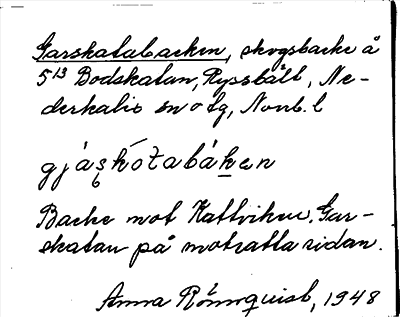 Garskatabacken, skogsbacke å
5¹³ Bodskatan, Rysshält, Ne-
derkalix sn o tg, Norrb. l
gjáʂkótabáken
Backe mot Kattviken. Gar-
skatan på motsatta sidan.
Anna Rönnquist, 1948